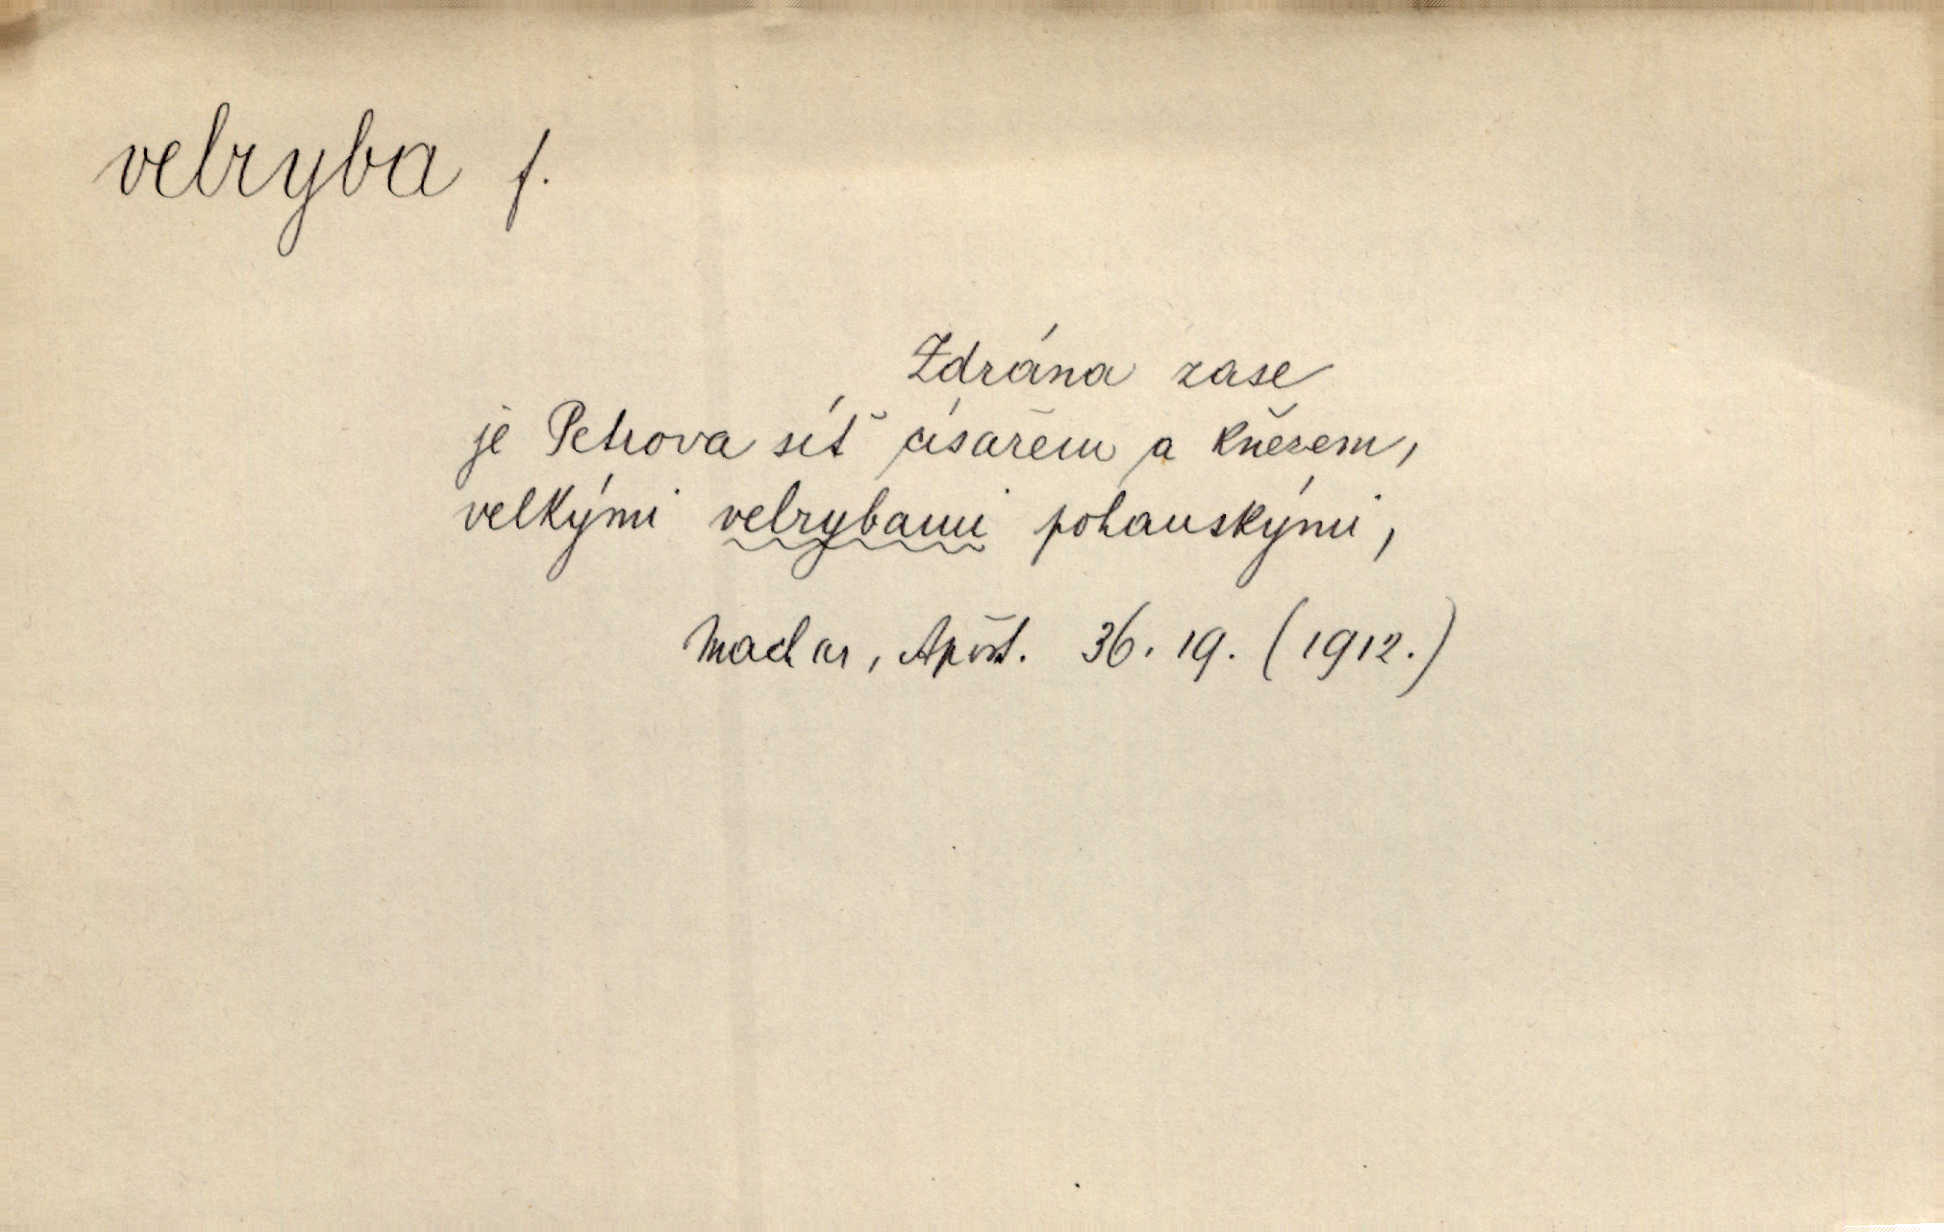 velryba f.
Zdrána zase
je Petrova síť císařem a knězem,
velkými velrybami pohanskými,
Machar, Apošt. 36. 19. (1912.)